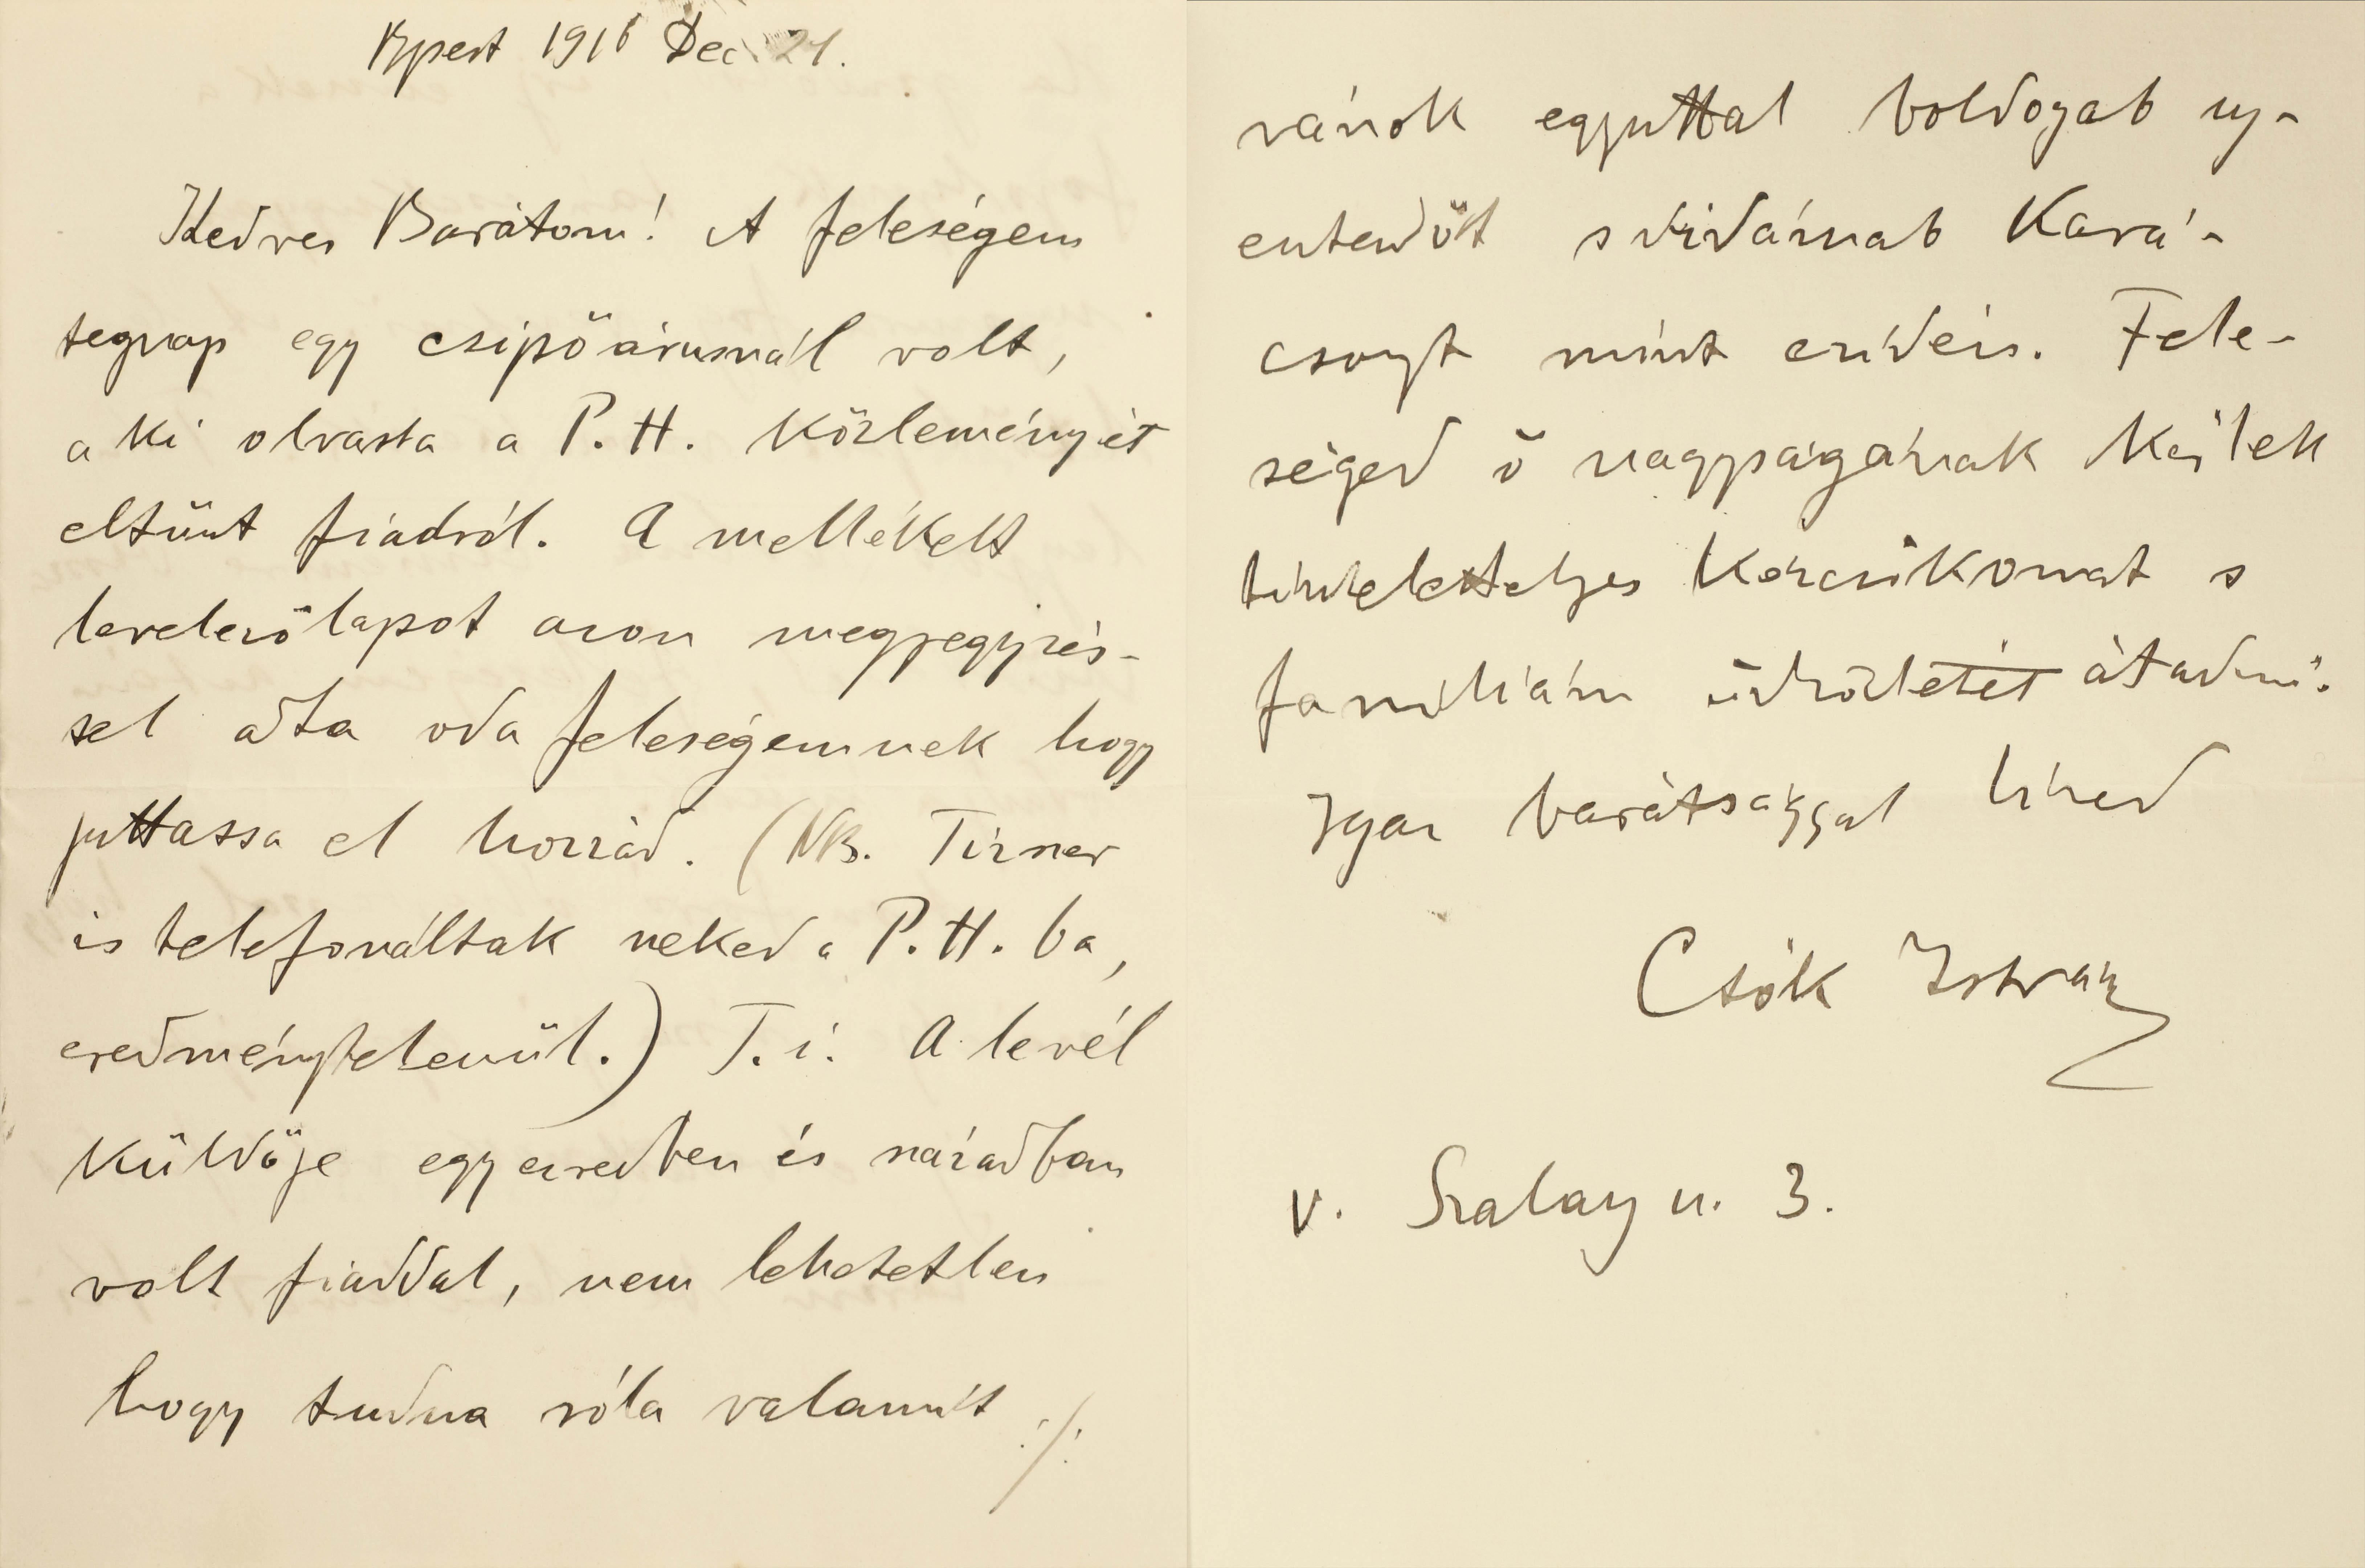 Bpest 1916 Dec. 21.
Kedves Barátom! A feleségem
tegnap egy csipőárusnál volt,
a ki olvasta a P. H. közleményét
eltünt fiadról. A mellékelt
levelezőlapot azon megjegyzés-
sel adta oda feleségemnek hogy
juttassa el hozzád. (NB. Tizszer
is telefonáltak neked a P. H. ba,
eredménytelenül.) T. i. A levél
küldője egy ezredben és században
volt fiaddal, nem lehetetlen
hogy tudna róla valamit ./.
vánok egyuttal boldogab uj-
entendőt s vidámab Kará-
csonyt mint ez idéis. Fele-
séged ő nagyságának kérlek
tiszteletteljes kézcsókomat s
familiám üdvözletét átadni.
Igaz barátsággal hived
Csók István
V. Szalay u. 3.